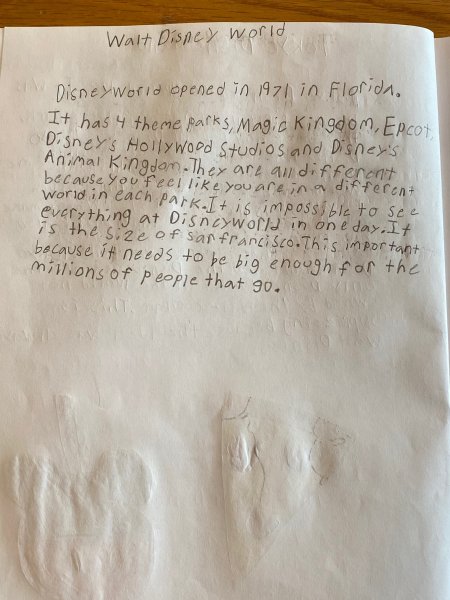 Walt Disney World
Disneyworld opened in 1971 in Florida.
It has 4 theme parks, Magic Kingdom, Epcot,
Disney's Hollywood Studios and Disney's
Animal Kingdom. They are all different
because you feel like you are in a different
world in each park. It is impossible to see
everything at Disneyworld in one day. It
is the size of san francisco. This important
because it needs to be big enough for the
millions of people that go.